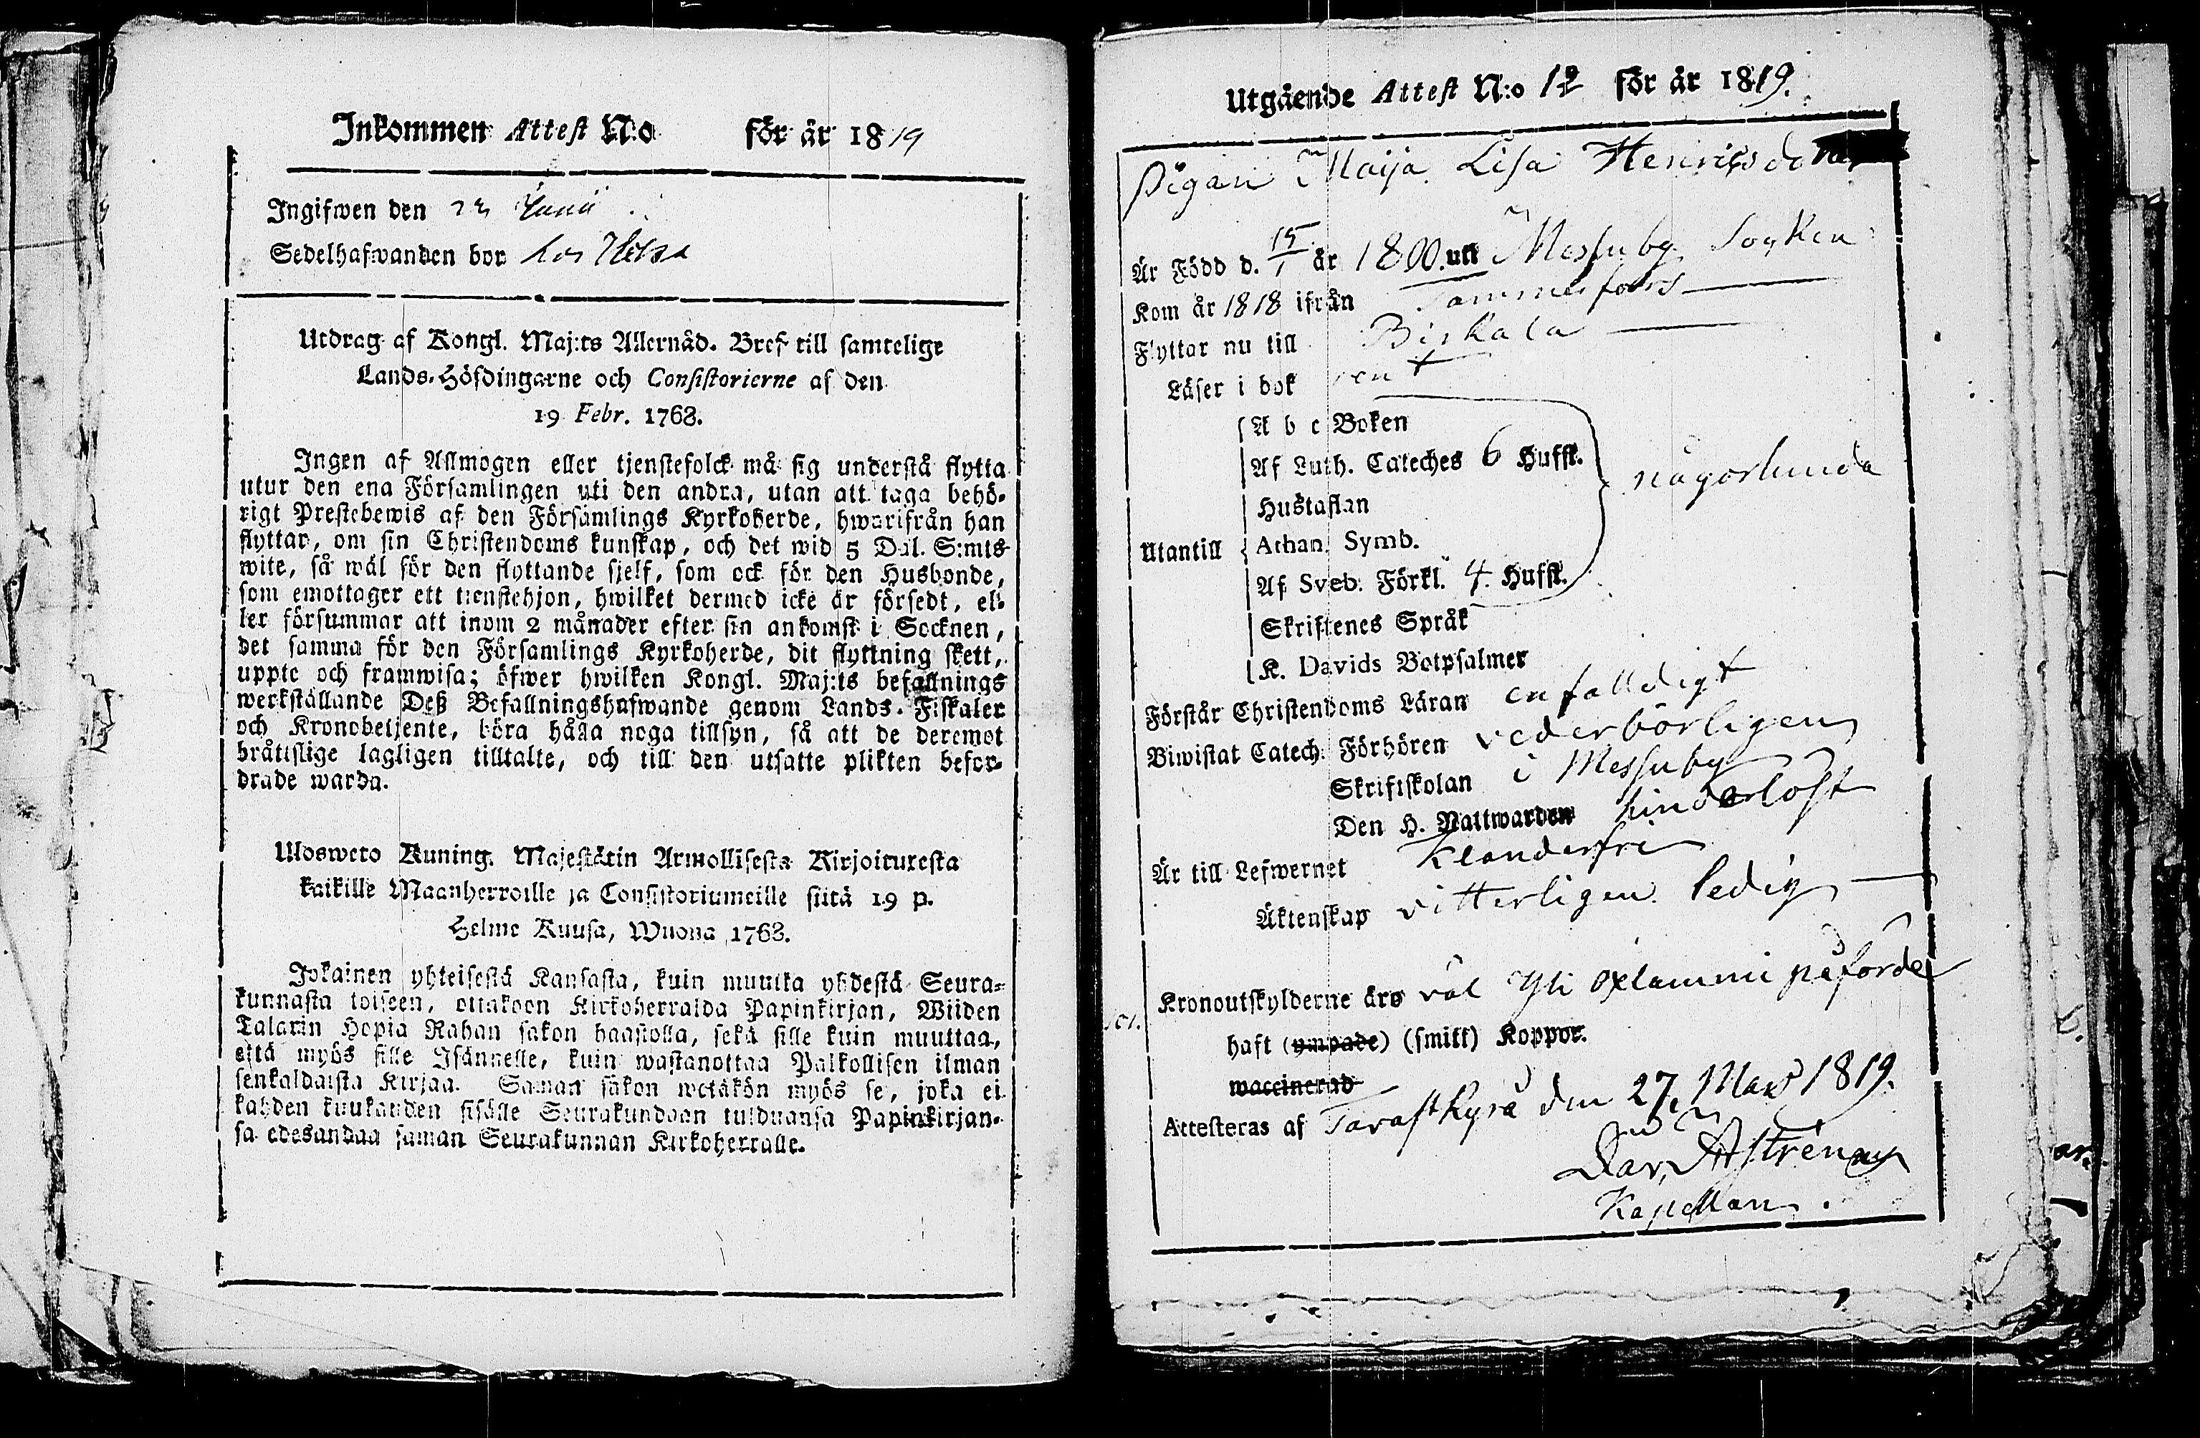 Inkommen Attest N:o för år 1819
Ingifwen den 24 Junii
Sedelhafwanden bor hos
Utdrag af Kongl. Maj:ts Allernåd. Bref till samtelige
Lands-Höfdingarne och Consistorierne af den
19 Febr. 1768.
Ingen af Allmogen eller tjenstefolck må sig understå flytta
utur den ena Församlingen uti den andra, utan att taga behö-
rigt Prestebewis af den Församlings Kyrkoherde, hwarifrån han
flyttar, om sin Christendoms kunskap, och det wid 5 Dal. S:mts
wite, så wäl för den flyttande sjelf, som ock för den Husbonde,
som emottager ett tienstehjon, hwilket dermed icke är försedt, el-
ler försummar att inom 2 månader efter sin ankomst i Socknen,
det samma för den Församlings Kyrkoherde, dit flyttning skett,
uppte och framwisa; öfwer hwilken Kongl. Maj:ts befallnings
werkställande Deß Befallningshafwande genom Lands-Fiskaler
och Kronobetjente, böra hålla noga tillsyn, så att de deremot
bråttslige lagligen tilltalte, och till den utsatte plikten befor-
drade warda.
Ulosweto Kuning. Majestätin Armollisesta Kirjoituresta
kaikille Maanherroille ja Consistoriumeille siitä 19 p.
Helme Kuusa, Wuona 1768.
Jokainen yhteisestä Kansasta, kuin muutta yhdestä Seura-
kunnasta toiseen, ottakoon Kirkoherralda Papinkirjan, Wiiden
Talarin Hopia Rahan sakon haastolla, sekä sille kuin muuttaa,
että myös sille Isännelle, kuin wastanottaa Palkollisen ilman
senkaldaista Kirjaa. Saman sakon wetäkön myös se, joka ei
kahden kuukauden sisälle Seurakundaan tulduansa Papinkirjan-
sa edesandaa saman Seurakunnan Kirkoherralle.
Utgående Attest N:o 12 för år 1819.
Pigan Maija Lisa Henricsdotter
Är Född d. 15/1 år 1800. uti Messuby Soyken
Kom år 1818 ifrån Tammerfors
Flyttar nu till Birkala
Läser i bok rent
A b c Boken
Af Luth. Cateches 6 Hufst. någorlunda
Hustaflan
Utantill Athan. Symb.
Af Sveb. Förkl. 4. Hufst.
Skriftenes Språk
K. Davids Botpsalmer
Förstår Christendoms Läran enfalldigt
Biwistat Catech. Förhören vederbörligen
Skriftskolan i Messuby
Den H. Nattwarden hinderlöst
Är till Lefwernet Klanderfri
Äktenskap vitterligen ledig
Kronoutskylderne äro väl Yli Oxlammi påförde
haft (ympade) (smitt) Koppor.
waccinerad
Attesteras af Tavastkyrå den 27. Mars 1819.
Dav. Astrénius
Kapellan.